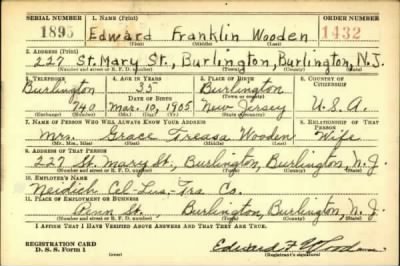 SERIAL NUMBER 1. NAME (Print) ORDER NUMBER
1895 Edward Franklin Wooden 1432
(First) (Middle) (Last)
2. ADDRESS (Print)
227 St. Mary St., Burlington, Burlington, N.J.
(Number and street or R. F. D. number) (Town) (County) (State)
3. TELEPHONE 4. AGE IN YEARS 5. PLACE OF BIRTH 6. COUNTRY OF CITIZENSHIP
Burlington 35 Burlington
DATE OF BIRTH (Town or county)
740 Mar. 10, 1905 New Jersey U.S.A.
(Exchange) (Number) (Mo.) (Day) (Yr.) (State or country)
7. NAME OF PERSON WHO WILL ALWAYS KNOW YOUR ADDRESS 8. RELATIONSHIP OF THAT PERSON
Mrs. Grace Treasa Wooden Wife
(Mr., Mrs., Miss) (First) (Middle) (Last)
9. ADDRESS OF THAT PERSON
227 St. Mary St., Burlington, Burlington, N.J.
(Number and street or R. F. D. number) (Town) (County) (State)
10. EMPLOYER'S NAME
Neidich Cel-Lus-Trs. Co.
11. PLACE OF EMPLOYMENT OR BUSINESS
Penn St., Burlington, Burlington, N.J.
(Number and street or R. F. D. number) (Town) (County) (State)
I AFFIRM THAT I HAVE VERIFIED ABOVE ANSWERS AND THAT THEY ARE TRUE.
REGISTRATION CARD
D. S. S. Form 1 Edward F. Wooden
(Registrant's signature)